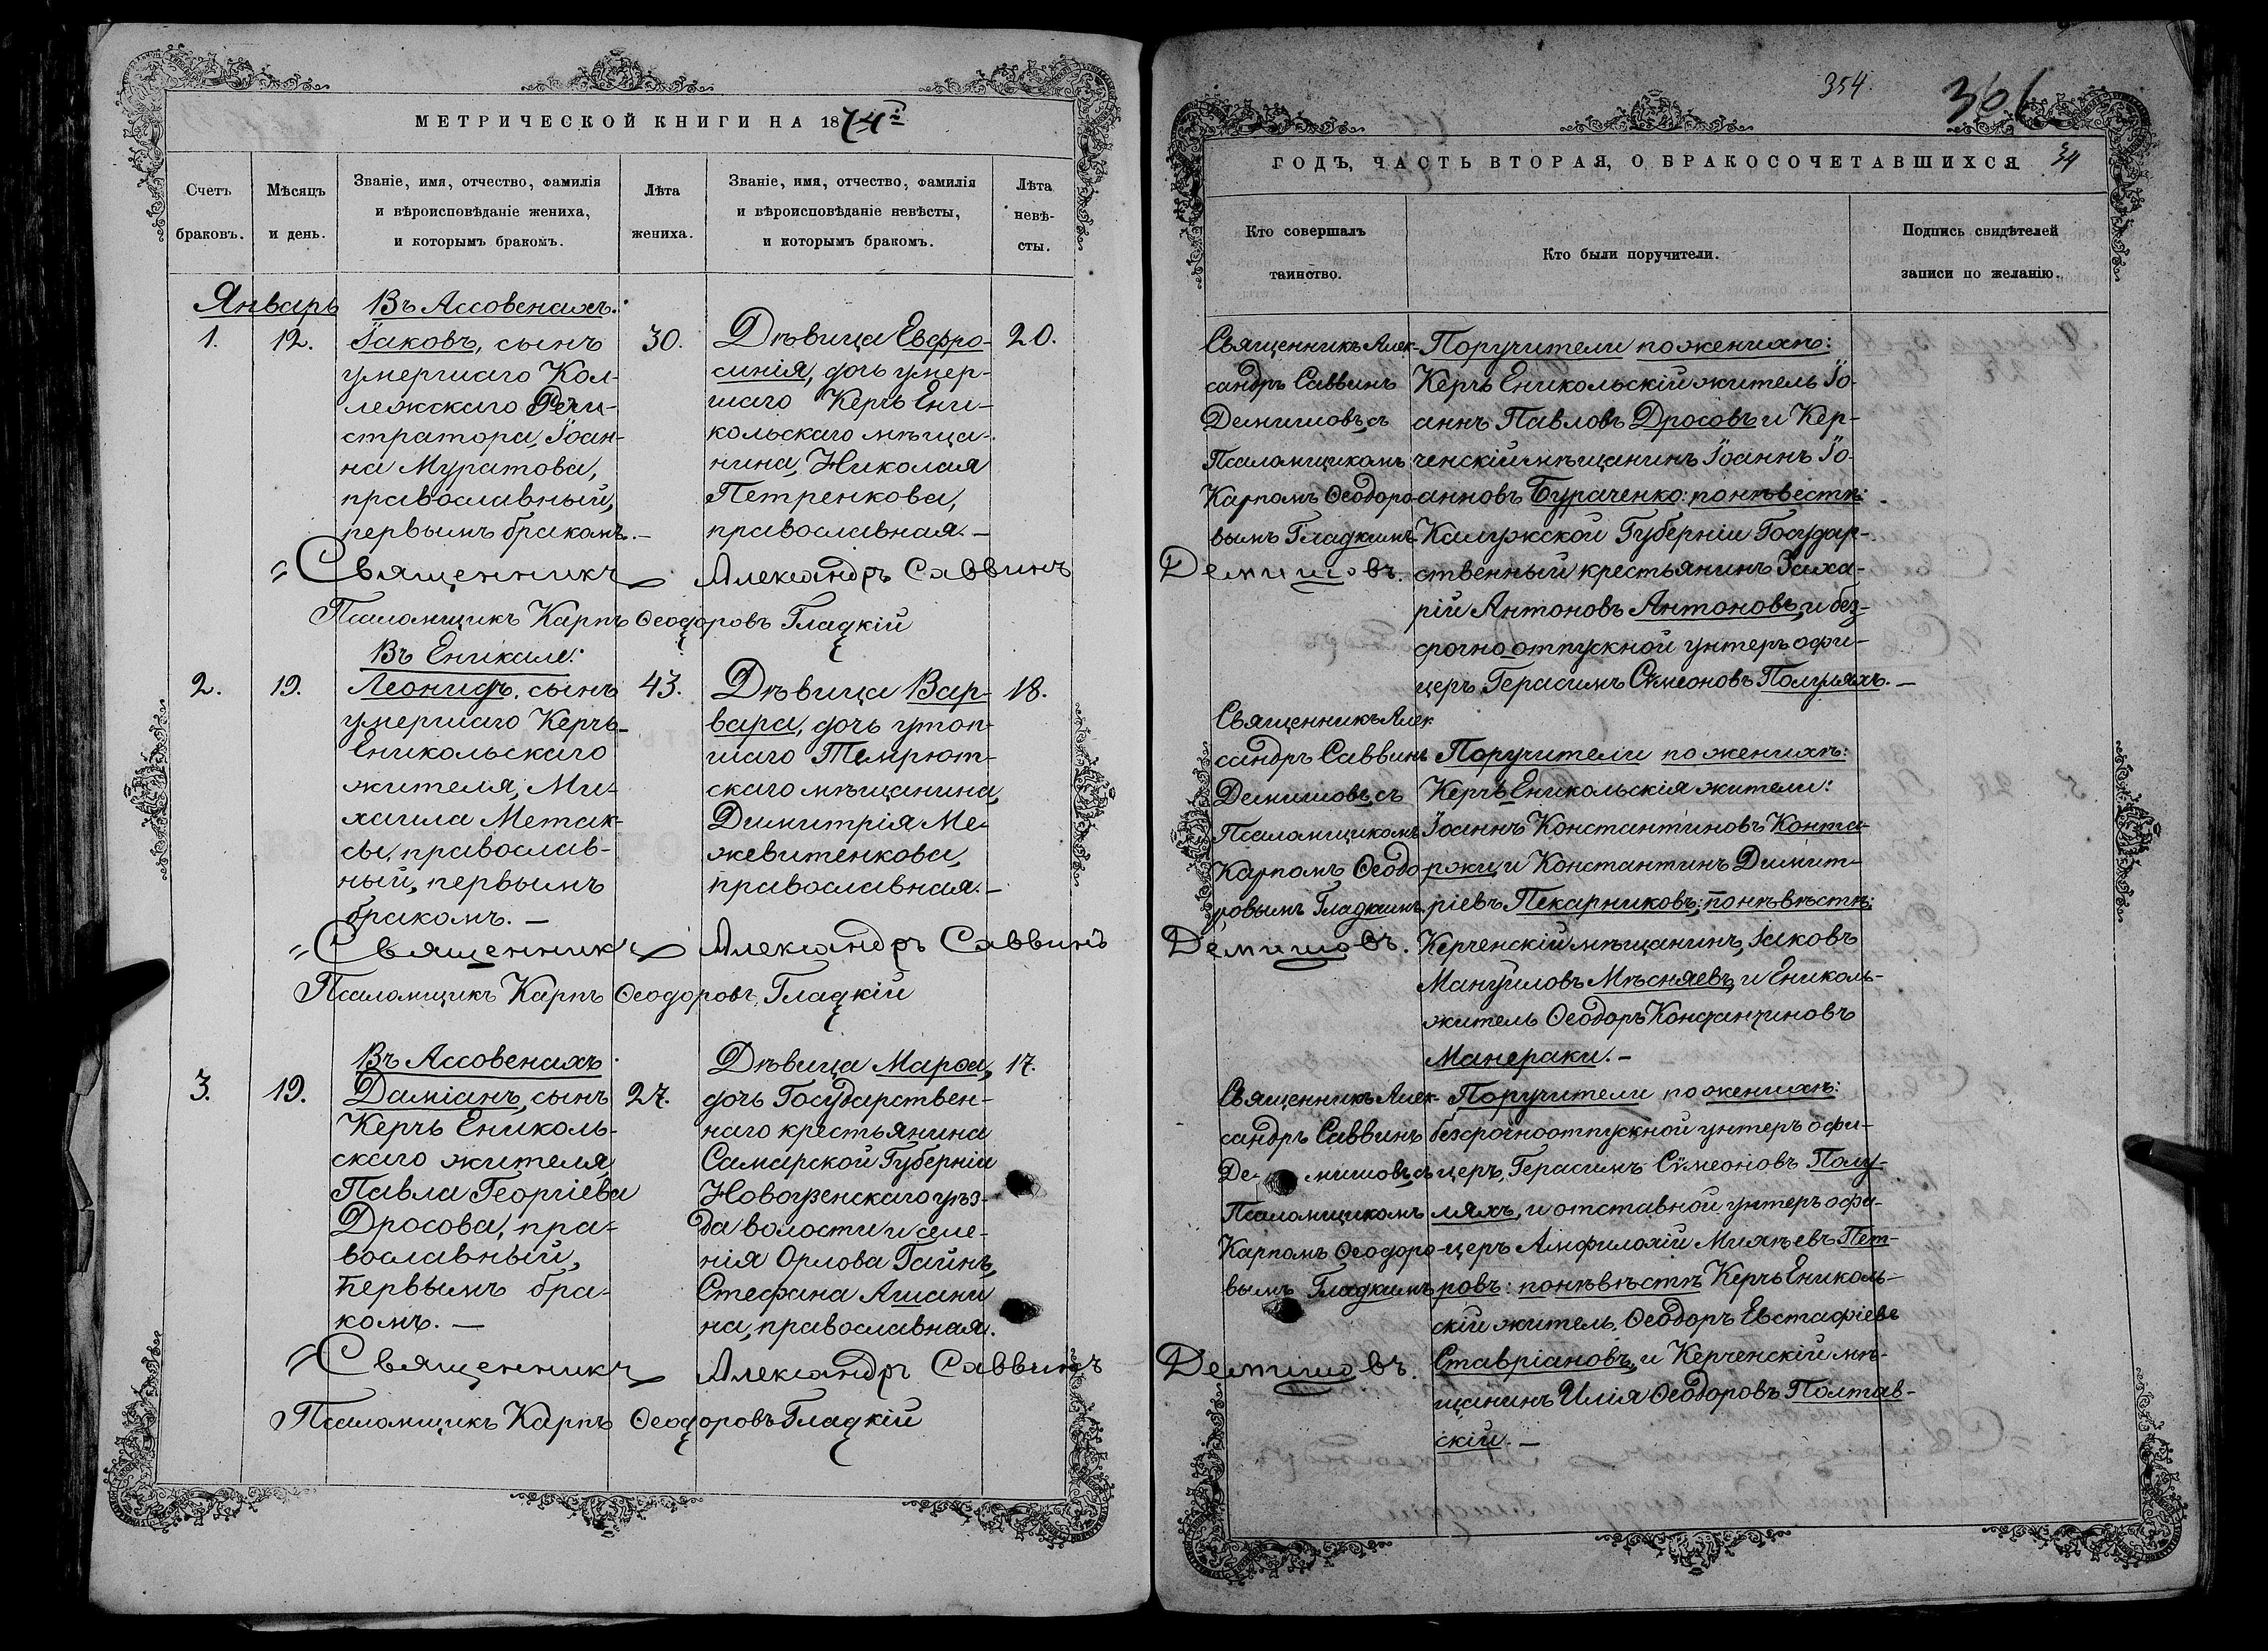 МЕТРИЧЕСКОЙ КНИГИ НА 1874й
Счетъ браковъ.
Мѣсяцъ и день.
Званіе, имя, отчество, фамилія
и вѣроисповѣданіе жениха,
и которымъ бракомъ.
Лѣта жениха.
Званіе, имя, отчество, фамилія
и вѣроисповѣданіе невѣсты,
и которымъ бракомъ.
Лѣта невѣ-
сты.
Январь
Въ Ассовенахъ:
1.
12.
Іаковъ, сынъ
умершаго Кол-
лежскаго Реги-
стратора, Іоан-
на Муратова,
православный,
первымъ бракомъ.—
30.
Дѣвица Евфро-
синія, дочь умер-
шаго Керчь Ени-
кольскаго мѣща-
нина, Николая
Петренкова,
православная.—
20.
Священникъ Александръ Саввинъ
Псаломщикъ Карпъ Ѳеодоровъ Гладкій
Въ Еникале:
2.
19.
Леонидъ, сынъ
умершаго Керчь-
Еникольскаго
жителя, Ми-
хаила Метак-
сы, православ-
ный, первымъ
бракомъ.—
43.
Дѣвица Вар-
вара, дочь утоп-
шаго Темрют-
скаго мѣщанина,
Димитрія Ме-
жевитенкова,
православная.—
18.
Священникъ Александръ Саввинъ
Псаломщикъ Карпъ Ѳеодоровъ Гладкій
Въ Ассовенахъ
3.
19.
Даміанъ, сынъ
Керчь Ениколь-
скаго жителя,
Павла Георгіева
Дросова, пра-
вославный,
первымъ бра-
комъ.—
27.
Дѣвица Марѳа,
дочь Государствен-
наго крестьянина
Самарской Губерніи
Новоузенскаго уѣз-
да волости и селе-
нія Орлова Гайнъ,
Стефана Ашани
на, православная.
17.
Священникъ Александръ Саввинъ
Псаломщикъ Карпъ Ѳеодоровъ Гладкій
354.
361
34
ГОДЪ, ЧАСТЬ ВТОРАЯ, О БРАКОСОЧЕТАВШИХСЯ
Кто совершалъ
таинство.
Кто были поручители.
Подпись свидѣтелей
записи по желанію.
Священникъ Алек-
сандръ Саввинъ
Демишовъ съ
Псаломщикомъ
Карпомъ Ѳеодоро-
вымъ Гладкимъ
Демишовъ.
Поручители по женихѣ:
Керчь Еникольскій житель Іо-
аннъ Павловъ Дросовъ и Кер-
ченскій мѣщанинъ Іоаннъ Іо-
анновъ Бураченко: по невѣстѣ:
Калужской Губерніи Государ-
ственный крестьянинъ Заха-
рій Антоновъ Антоновъ, и без-
срочно отпускной унтеръ офи-
церъ Герасимъ Сѵмеоновъ Полуляхъ.—
Священникъ Алек
сандръ Саввинъ
Демишовъ съ
Псаломщикомъ
Карпомъ Ѳеодо
ровымъ Гладкимъ.
Демишовъ.
Поручители по женихѣ:
Керчь Еникольскія жители:
Іоаннъ Константиновъ Конта-
роки, и Константинъ Димит-
ріевъ Пекарниковъ; по невѣстѣ:
Керченскій мѣщанинъ, Іаковъ
Мануиловъ Мѣсняевъ, и Ениколь-
житель Ѳеодоръ Константиновъ
Манераки.—
Священникъ Алек-
сандръ Саввинъ
Де-мишовъ съ
Псаломщикомъ
Карпомъ Ѳеодоро-
вымъ Гладкимъ
Демишовъ.
Поручители по женихѣ:
безсрочноотпускной унтеръ офи-
церъ, Герасимъ Сѵмеоновъ Полу-
ляхъ, и отставной унтеръ офи-
церъ Амфилохій Михѣевъ Пет-
ровъ: по невѣстѣ Керчь Ениколь-
скій житель, Ѳеодоръ Евстафіевъ
Ставріановъ, и Керченскій мѣ-
щанинъ Илія Ѳеодоровъ Полтав-
скій.—